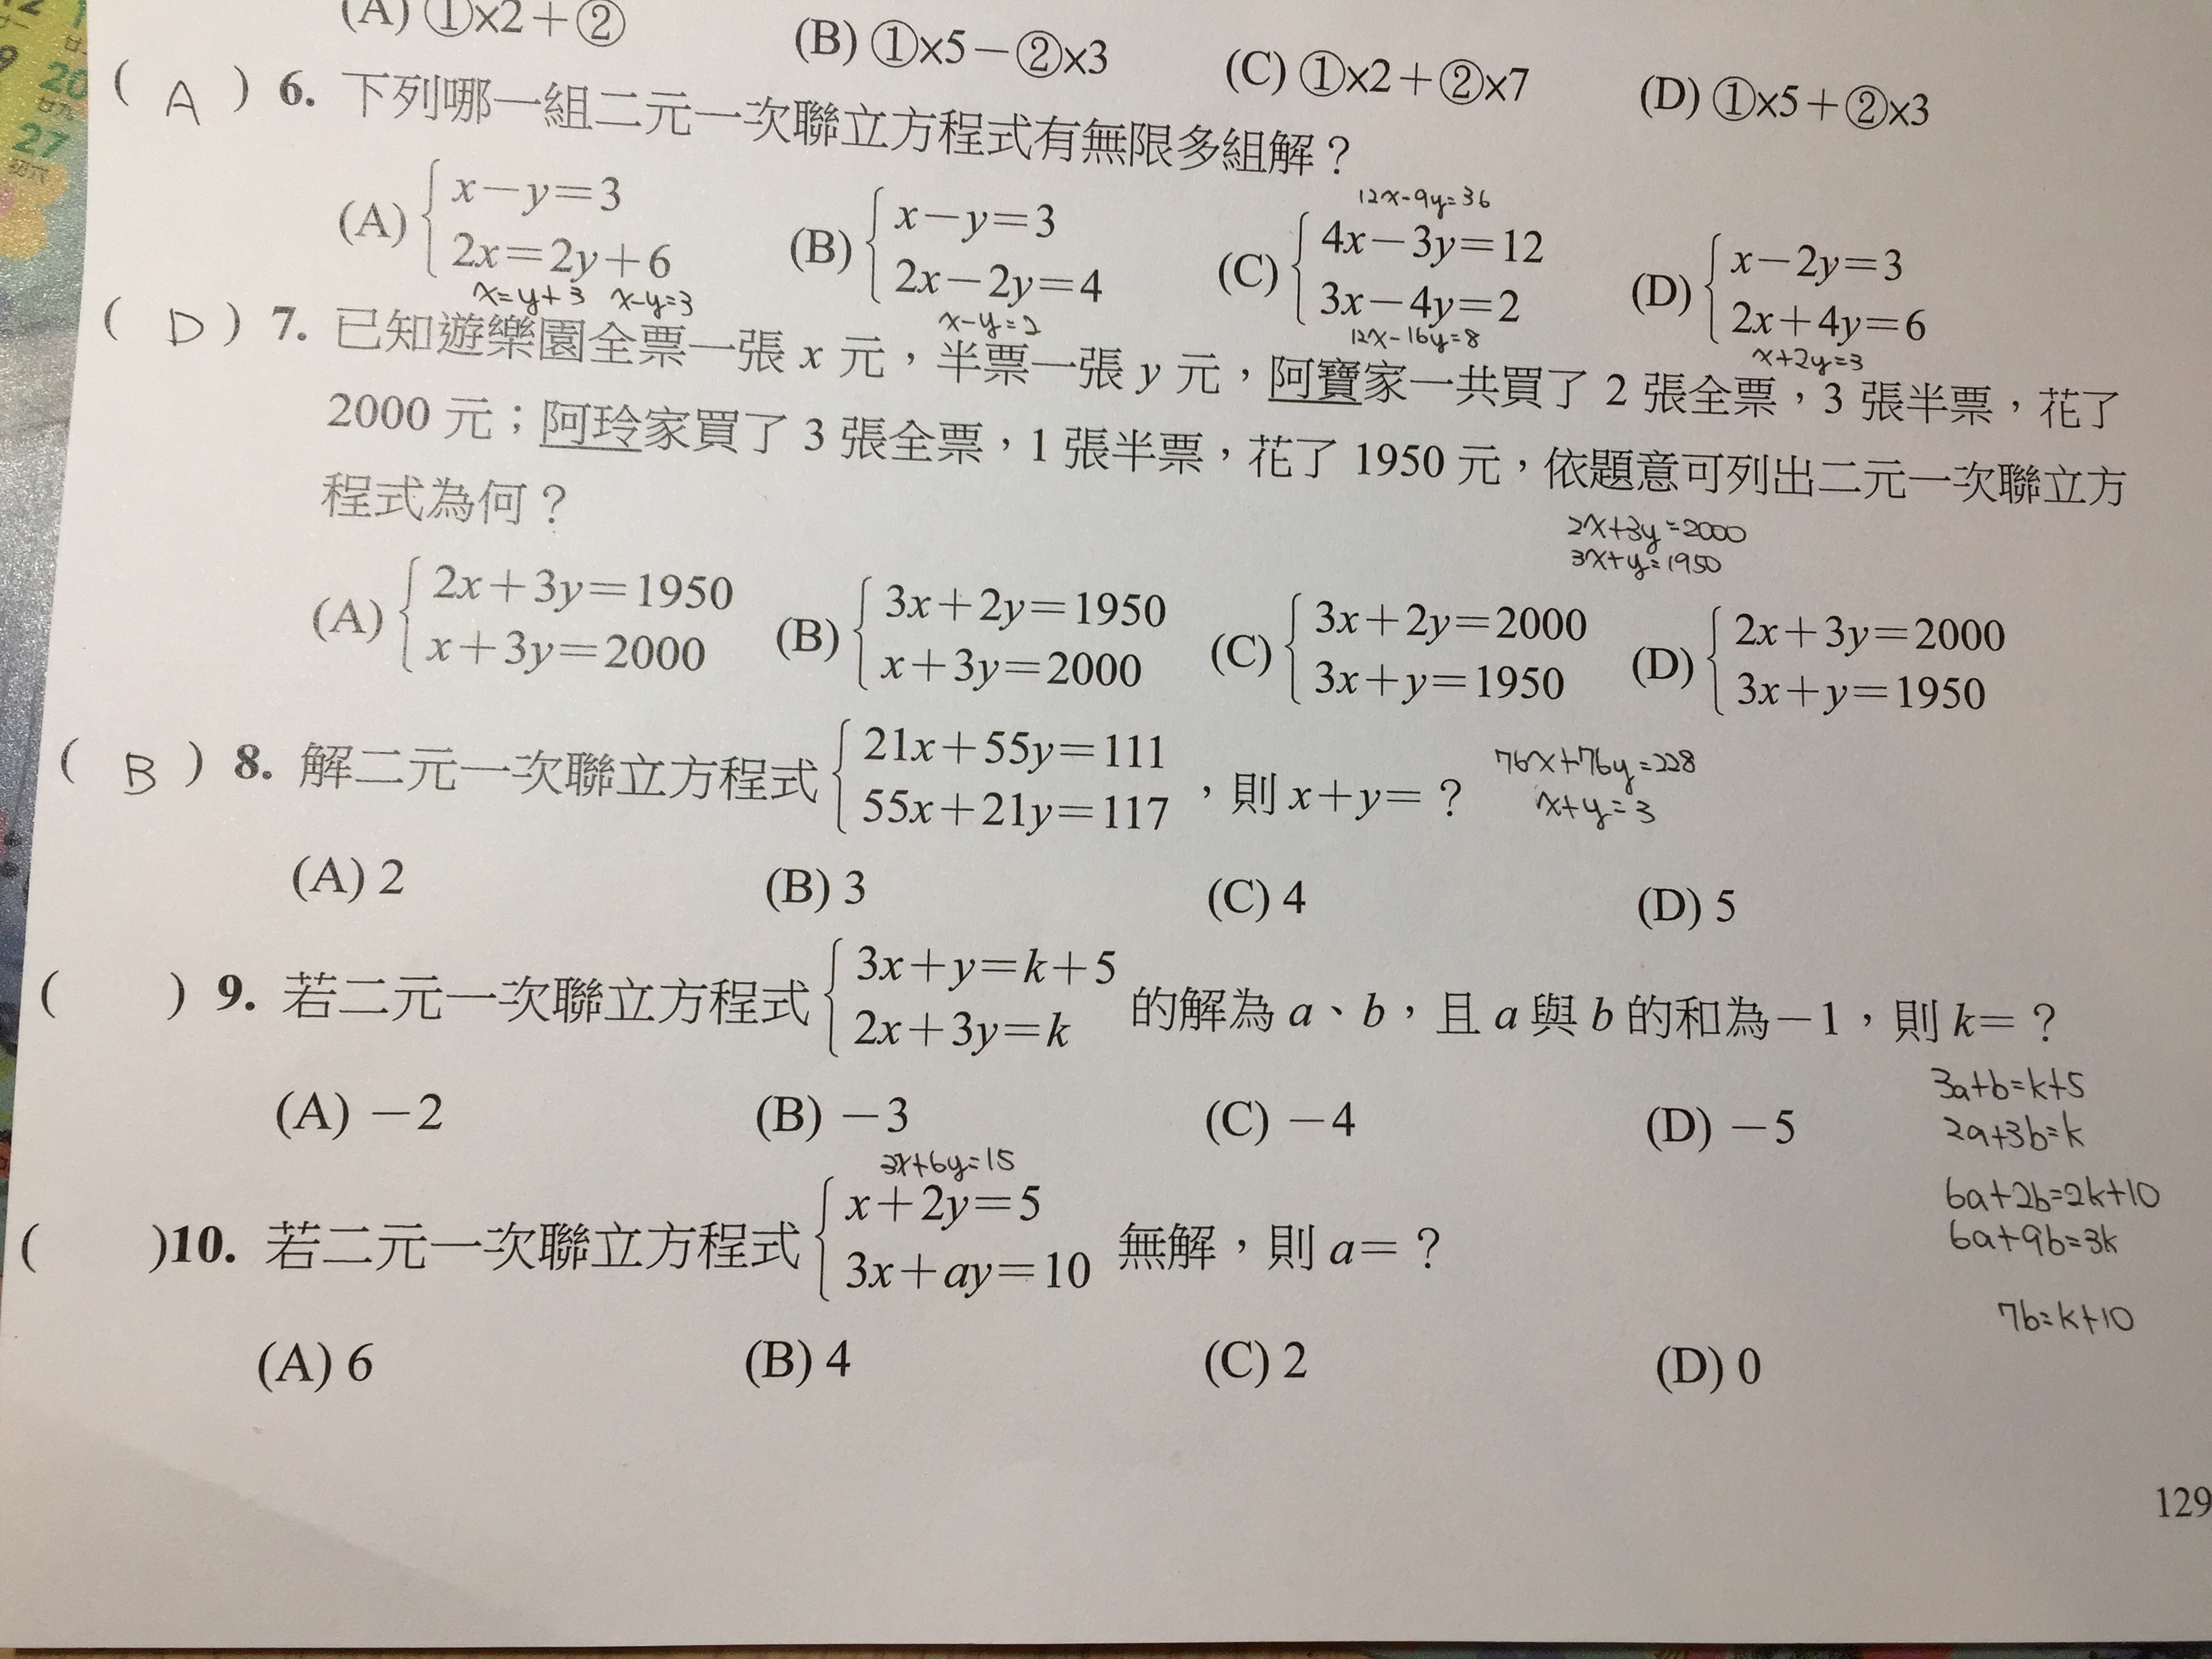 (A) ①×2+② (B) ①×5-②×3 (C) ①×2+②×7 (D) ①×5+②×3
20
廿九
27
初六
( A ) 6. 下列哪一組二元一次聯立方程式有無限多組解？
12x-9y=36
(A) { x-y=3 (B) { x-y=3 (C) { 4x-3y=12 (D) { x-2y=3
2x=2y+6 2x-2y=4 3x-4y=2 2x+4y=6
x=y+3 x-y=3 x-y=2 12x-16y=8 x+2y=3
( D ) 7. 已知遊樂園全票一張 x 元，半票一張 y 元，阿寶家一共買了 2 張全票，3 張半票，花了
2000 元；阿玲家買了 3 張全票，1 張半票，花了 1950 元，依題意可列出二元一次聯立方
程式為何？
2x+3y=2000
3x+y=1950
(A) { 2x+3y=1950 (B) { 3x+2y=1950 (C) { 3x+2y=2000 (D) { 2x+3y=2000
x+3y=2000 x+3y=2000 3x+y=1950 3x+y=1950
( B ) 8. 解二元一次聯立方程式 { 21x+55y=111
55x+21y=117 ，則 x+y=？
76x+76y=228
x+y=3
(A) 2 (B) 3 (C) 4 (D) 5
( ) 9. 若二元一次聯立方程式 { 3x+y=k+5
2x+3y=k 的解為 a、b，且 a 與 b 的和為-1，則 k=？
(A) -2 (B) -3 (C) -4 (D) -5
3a+b=k+5
2a+3b=k
6a+2b=2k+10
6a+9b=3k
7b=k+10
3x+6y=15
( )10. 若二元一次聯立方程式 { x+2y=5
3x+ay=10 無解，則 a=？
(A) 6 (B) 4 (C) 2 (D) 0
129